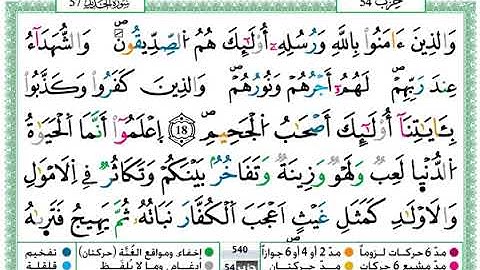 حِزْبُ 54 سُورَةُ الْحَدِيدِ 57
وَالذِينَ ءَامَنُوا بِاللَّهِ وَرُسُلِهِۦٓ أُوْلَٰٓئِكَ هُمُ الصِّدِّيقُونَۖ وَالشُّهَدَآءُ
عِندَ رَبِّهِمْ لَهُمُۥٓ أَجْرُهُمْ وَنُورُهُمْۖ وَالذِينَ كَفَرُوا وَكَذَّبُوا
بِـَٔايَٰتِنَآ أُوْلَٰٓئِكَ أَصْحَٰبُ الْجَحِيمِۖ 18 اِعْلَمُوٓا أَنَّمَا الْحَيَوٰةُ
الدُّنْيَا لَعِبٌ وَلَهْوٌ وَزِينَةٌ وَتَفَاخُرٌۢ بَيْنَكُمْ وَتَكَاثُرٌ فِي اِلَامْوَٰلِ
وَالَاوْلَٰدِ كَمَثَلِ غَيْثٍ اَعْجَبَ الْكُفَّارَ نَبَاتُهُۥ ثُمَّ يَهِيجُ فَتَرَىٰهُ
مدّ 6 حركات لزوماً مدّ 2 أو 4 أو 6 جوازاً 540 إخفاء، ومواقع الغُنَّة (حركتان) تفخيم
مدّ مشبع 6 حركات مدّ حركتان 54 إدغام، وما لا يُلفَظ قلقلة